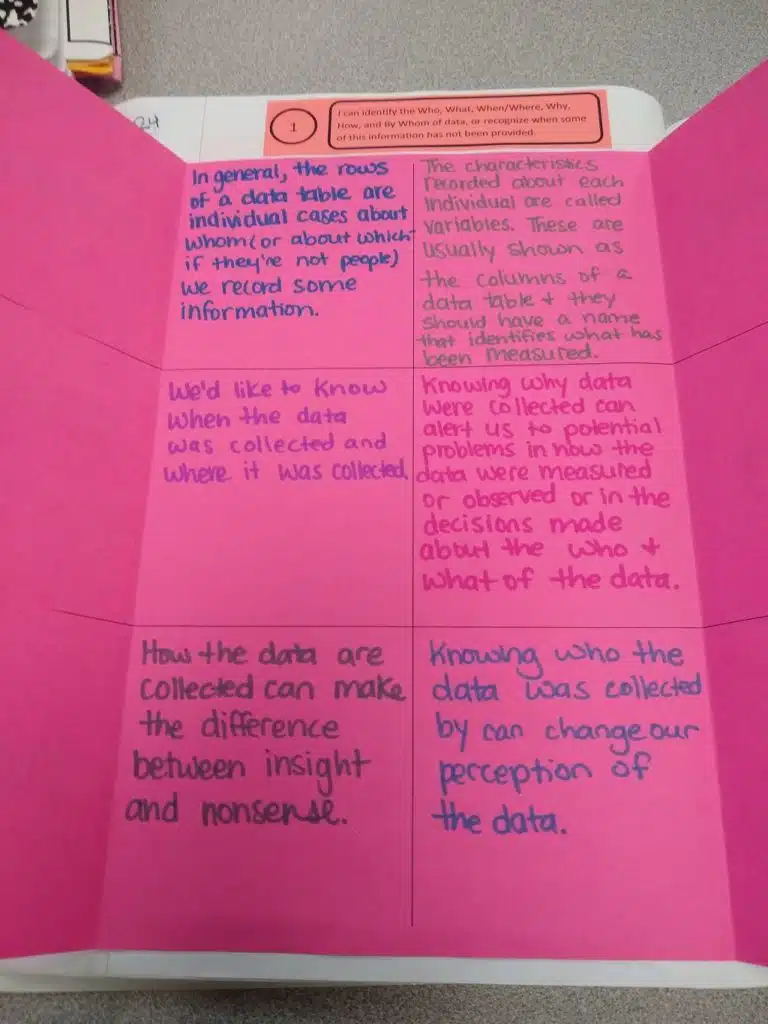 24
1
I can identify the Who, What, When/Where, Why,
How, and By Whom of data, or recognize when some
of this information has not been provided.
In general, the rows
of a data table are
individual cases about
whom (or about which
if they're not people)
we record some
information.
The characteristics
recorded about each
individual are called
variables. These are
usually shown as
the columns of a
data table + they
should have a name
that identifies what has
been measured.
We'd like to know
when the data
was collected and
where it was collected.
Knowing why data
were collected can
alert us to potential
problems in how the
data were measured
or observed or in the
decisions made
about the who +
what of the data.
How the data are
collected can make
the difference
between insight
and nonsense.
Knowing who the
data was collected
by can change our
perception of
the data.